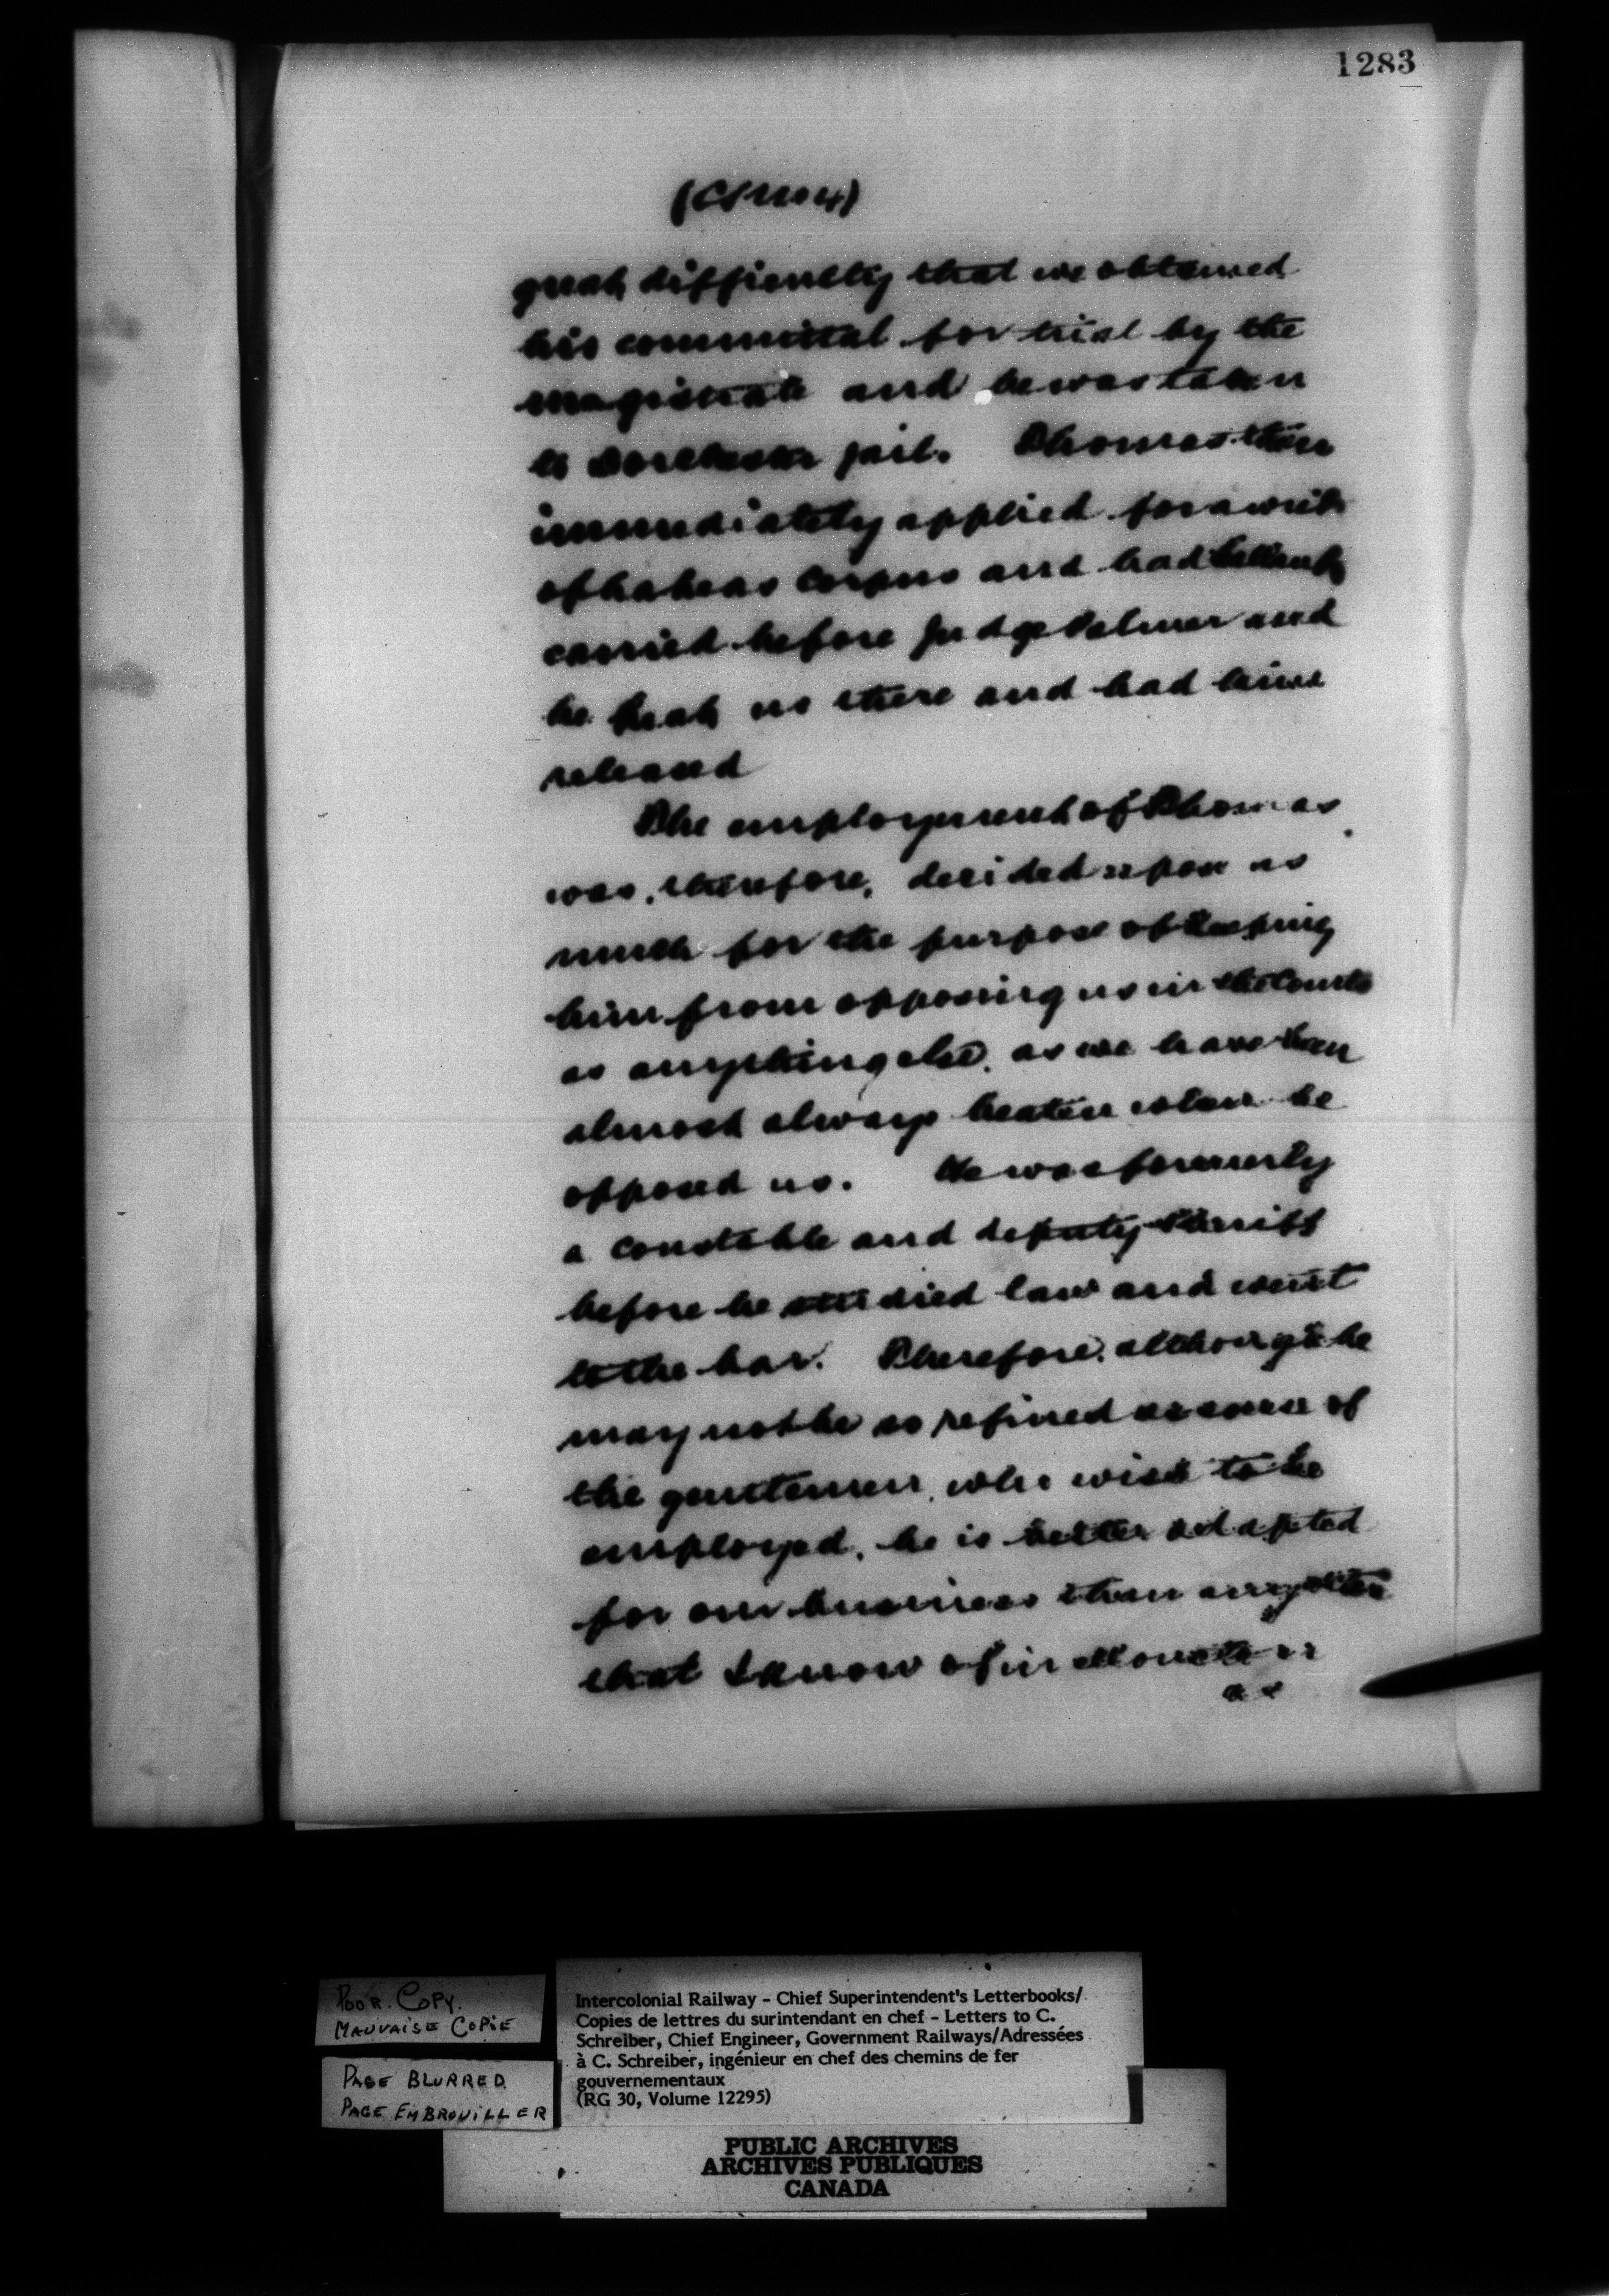 1283
(CS No 4)
great difficulty that we obtained
his committal for trial by the
magistrate and he was taken
to Dorchester jail. Thomas then
immediately applied for a writ
of habeas corpus and had
carried before Judge Palmer and
he beat us there and had him
released
The employment of Thomas
was, therefore, decided upon as
much for the purpose of keeping
him from opposing us in the Courts
as anything else, as we have been
almost always beaten when he
opposed us. He was formerly
a constable and deputy Sheriff
before he studied law and went
to the bar. Therefore, although he
may not be so refined as some of
the gentlemen, who wish to be
employed, he is better adapted
for our business than any other
that I know of in Moncton
as
POOR. COPY.
MAUVAISE COPIE
PAGE BLURRED
PAGE EMBROUILLER
Intercolonial Railway – Chief Superintendent's Letterbooks/
Copies de lettres du surintendant en chef – Letters to C.
Schreiber, Chief Engineer, Government Railways/Adressées
à C. Schreiber, ingénieur en chef des chemins de fer
gouvernementaux
(RG 30, Volume 12295)
PUBLIC ARCHIVES
ARCHIVES PUBLIQUES
CANADA